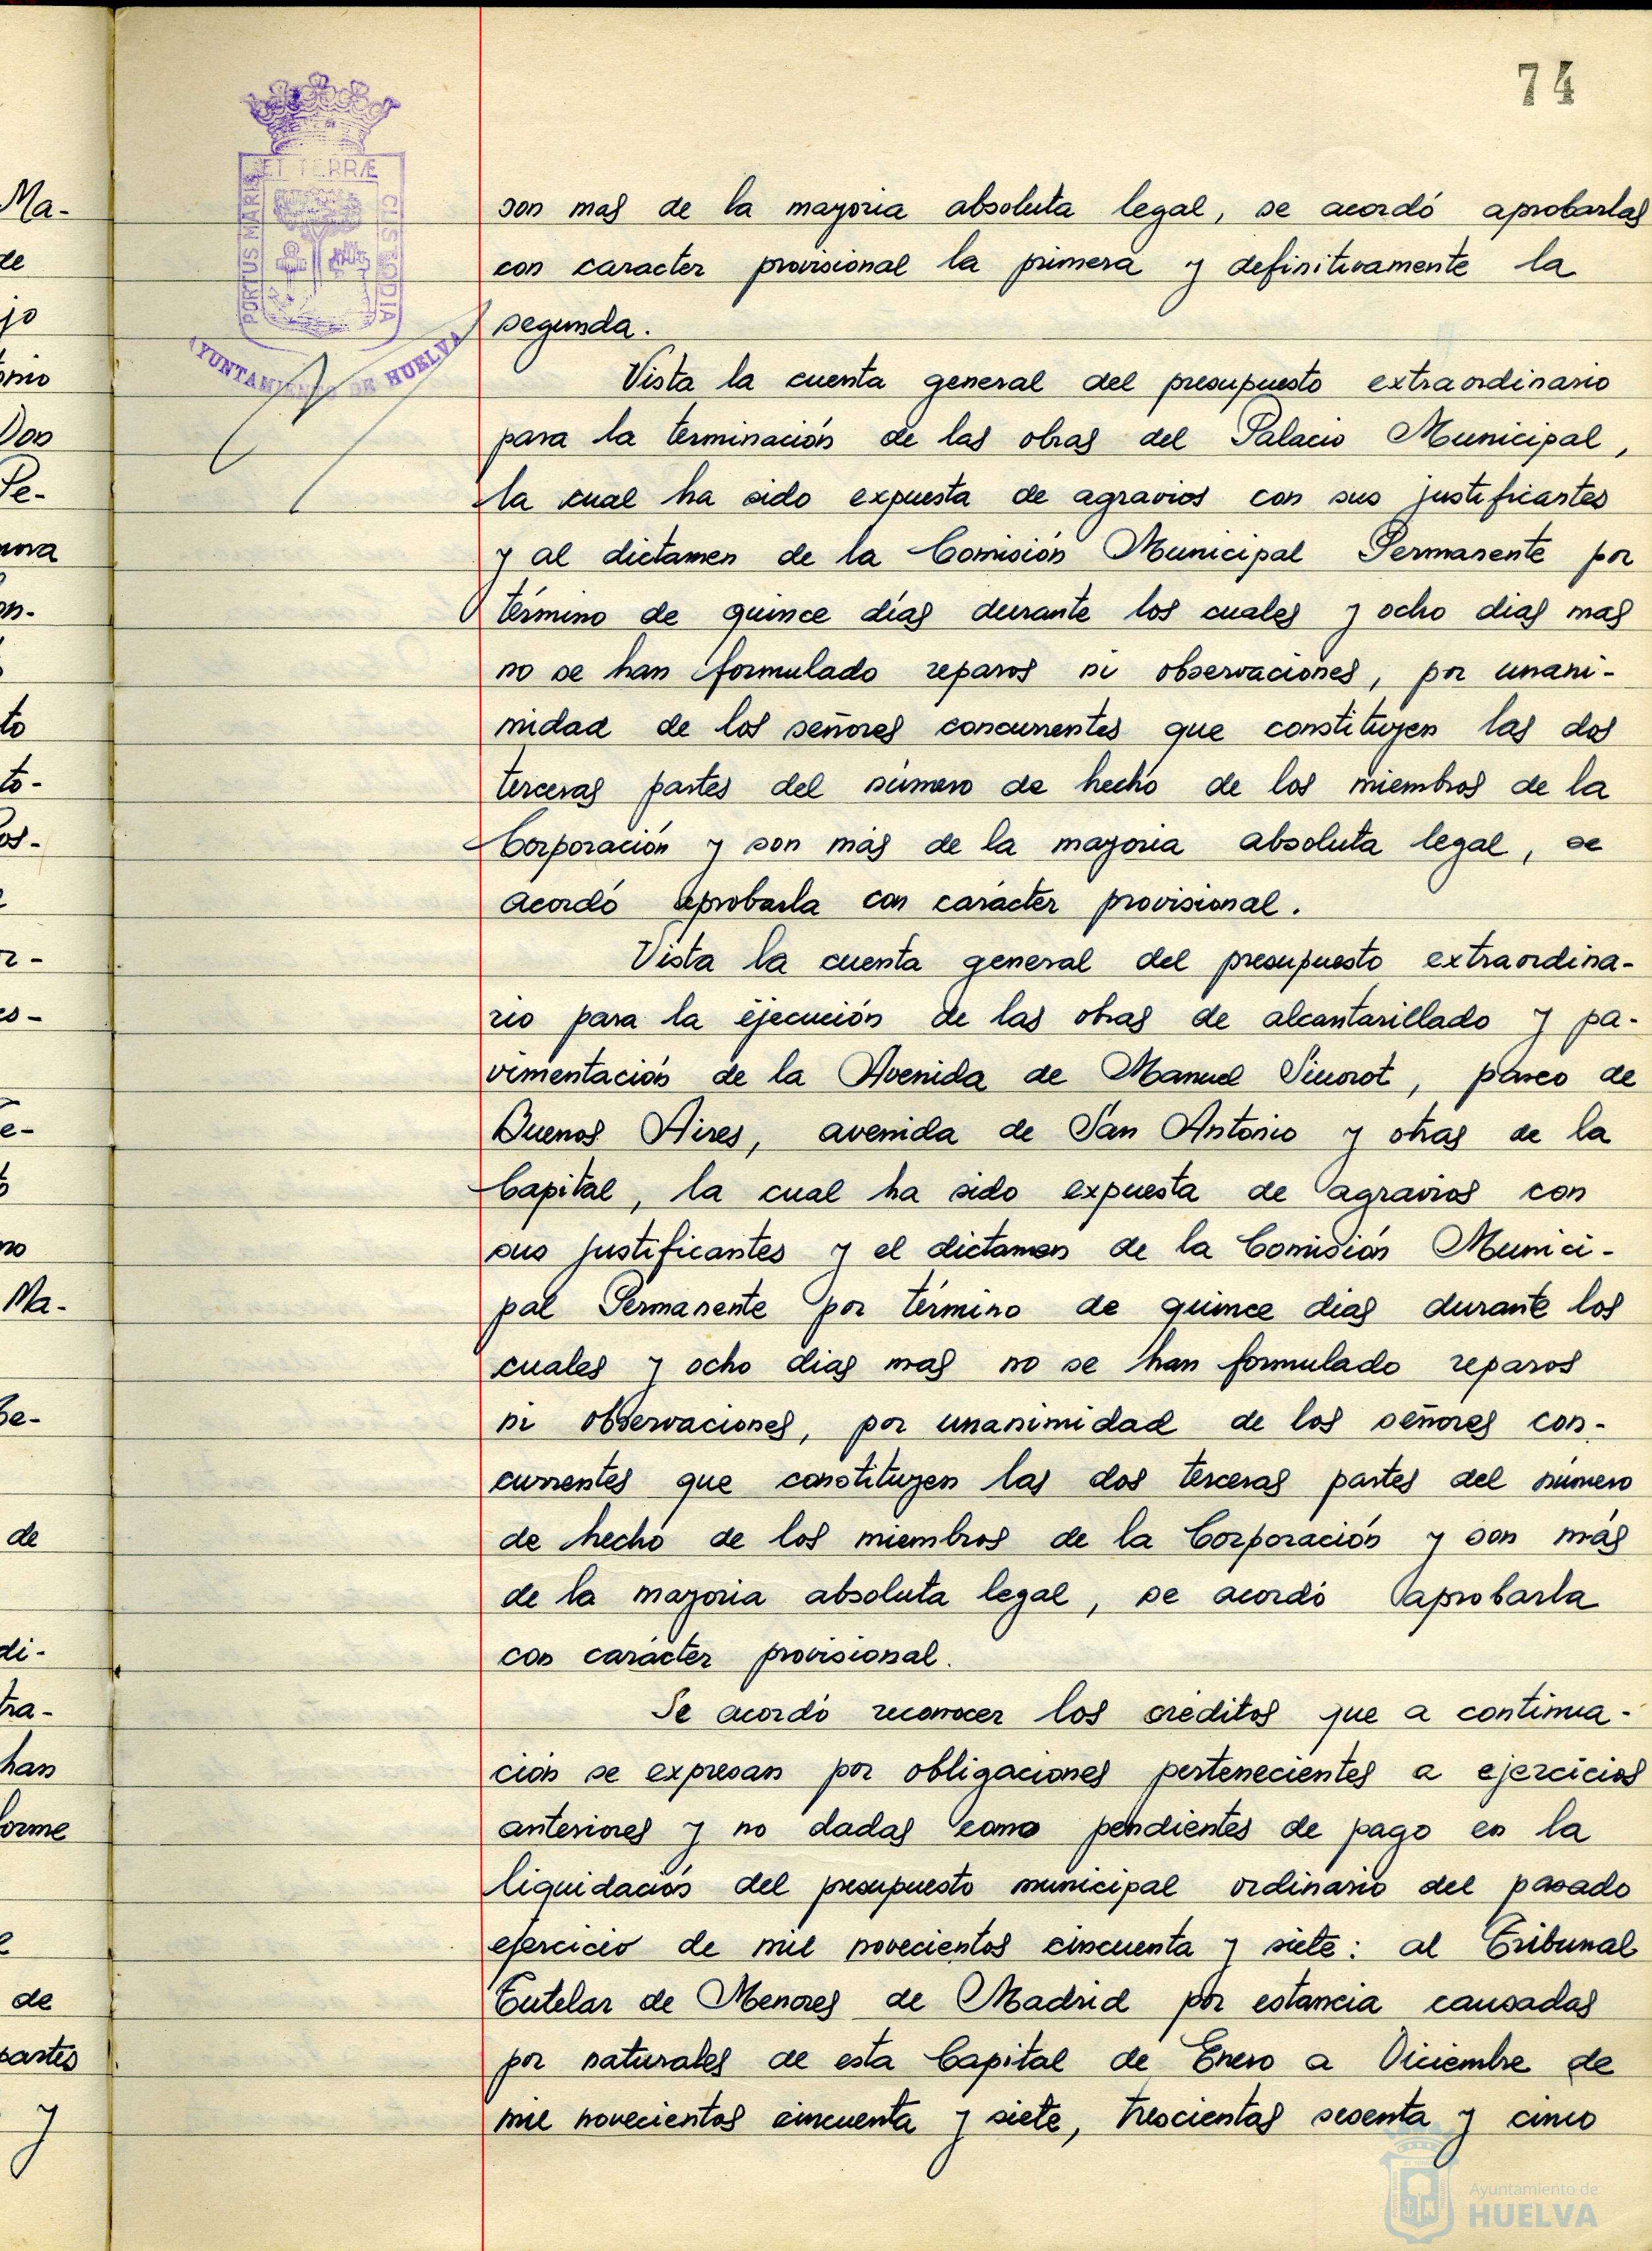 74
ET TERRÆ
PORTUS MARIS
CUSTODIA
AYUNTAMIENTO DE HUELVA
son mas de la mayoria absoluta legal, se acordó aprobarlas
con caracter provisional la primera y definitivamente la
segunda.
Vista la cuenta general del presupuesto extraordinario
para la terminación de las obras del Palacio Municipal,
la cual ha sido expuesta de agravios con sus justificantes
y al dictamen de la Comisión Municipal Permanente por
término de quince días durante los cuales y ocho dias mas
no se han formulado reparos ni observaciones, por unani-
midad de los señores concurrentes que constituyen las dos
terceras partes del número de hecho de los miembros de la
Corporación y son más de la mayoria absoluta legal, se
acordó aprobarla con carácter provisional.
Vista la cuenta general del presupuesto extraordina-
rio para la ejecución de las obras de alcantarillado y pa-
vimentación de la Avenida de Manuel Siurot, paseo de
Buenos Aires, avenida de San Antonio y otras de la
Capital, la cual ha sido expuesta de agravios con
sus justificantes y el dictamen de la Comisión Munici-
pal Permanente por término de quince dias durante los
cuales y ocho dias mas no se han formulado reparos
ni observaciones, por unanimidad de los señores con-
currentes que constituyen las dos terceras partes del número
de hecho de los miembros de la Corporación y son más
de la mayoria absoluta legal, se acordó aprobarla
con carácter provisional.
Se acordó reconocer los créditos que a continua-
ción se expresan por obligaciones pertenecientes a ejercicios
anteriores y no dadas como pendientes de pago en la
liquidación del presupuesto municipal ordinario del pasado
ejercicio de mil novecientos cincuenta y siete: al Tribunal
Tutelar de Menores de Madrid por estancia causadas
por naturales de esta Capital de Enero a Diciembre de
mil novecientos cincuenta y siete, trescientas sesenta y cinco
Ayuntamiento de
HUELVA